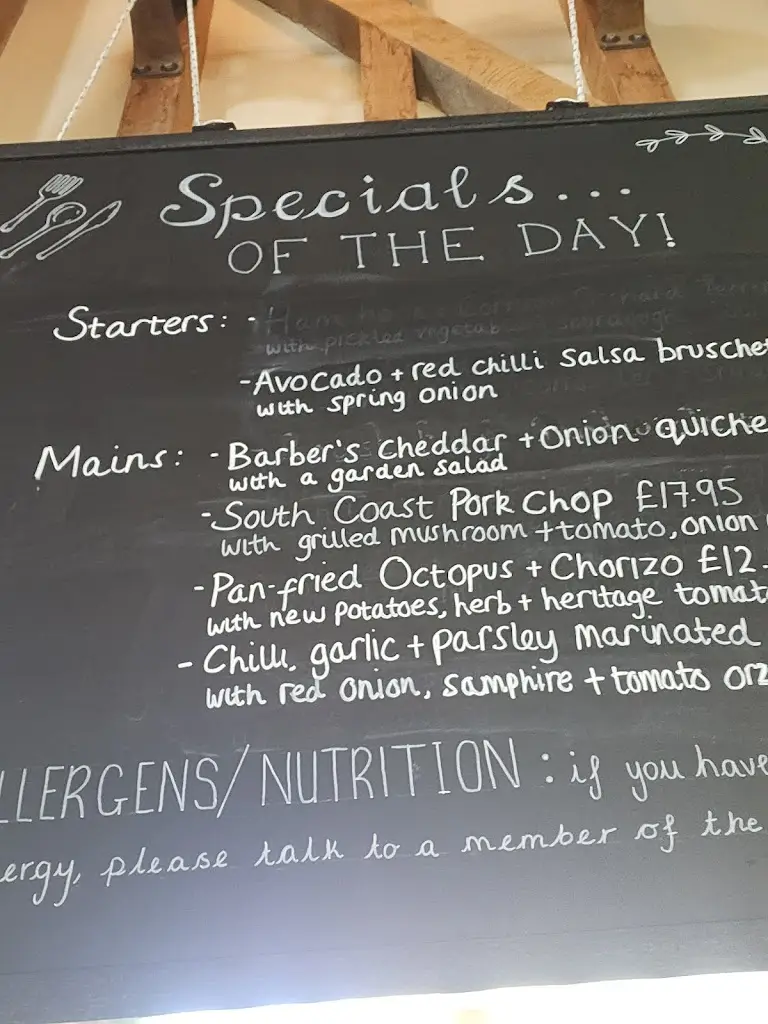 Specials...
OF THE DAY!
Starters: - Ham
with pickled
- Avocado + red chilli salsa brusche
with spring onion
Mains: - Barber's cheddar + Onion quiche
with a garden salad
- South Coast Pork Chop £17.95
with grilled mushroom + tomato, onion
- Pan-fried Octopus + Chorizo £12.
with new potatoes, herb + heritage tomat
- Chilli, garlic + parsley marinated
with red onion, samphire + tomato orz
LLERGENS/NUTRITION: if you have
ergy, please talk to a member of the